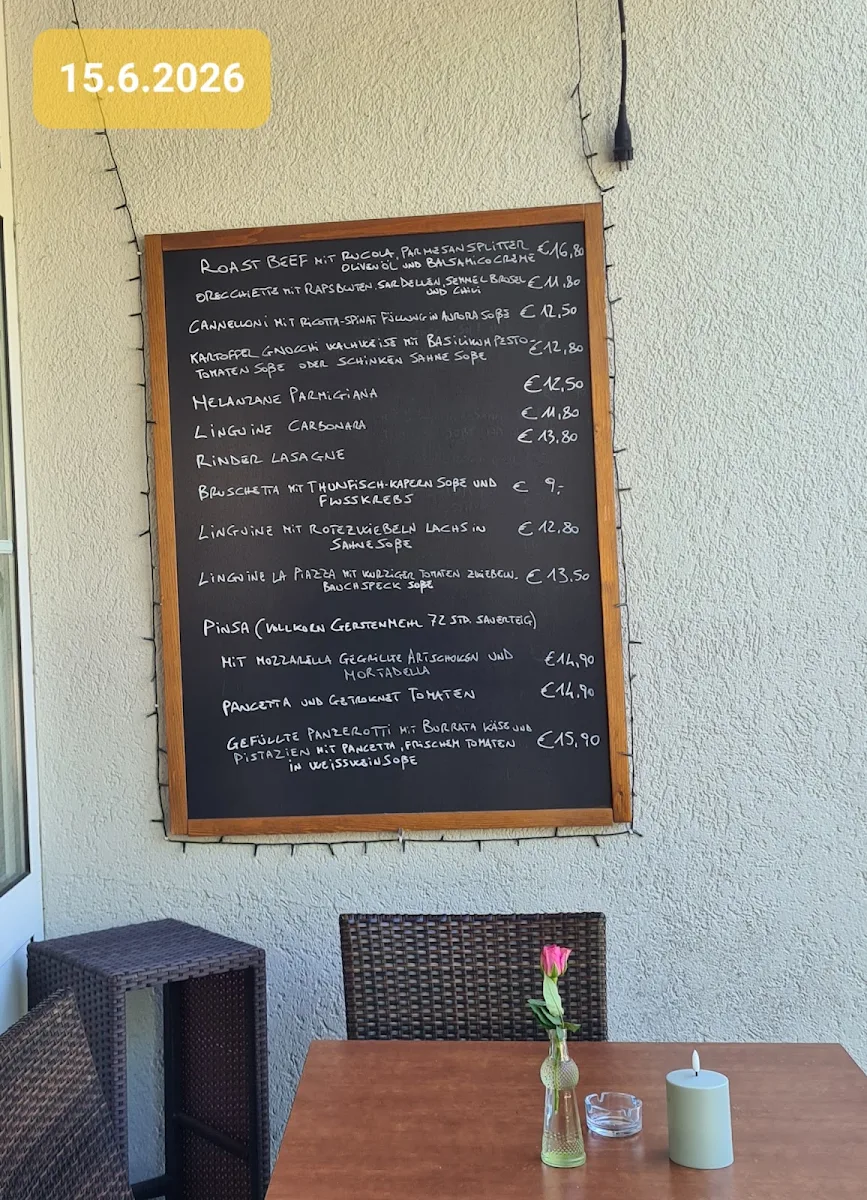 15.6.2026
ROAST BEEF MIT RUCOLA, PARMESANSPLITTER €16,80
OLIVENÖL UND BALSAMICOCREME
ORECCHIETTE MIT RAPSBLÜTEN, SARDELLEN, SEMMEL BRÖSEL €11,80
UND CHILI
CANNELLONI MIT RICOTTA-SPINAT FÜLLUNG IN AURORA SOßE €12,50
KARTOFFEL GNOCCHI WAHLWEISE MIT BASILIKUM PESTO- €12,80
TOMATEN SOßE ODER SCHINKEN SAHNE SOßE
MELANZANE PARMIGIANA €12,50
LINGUINE CARBONARA €11,80
RINDER LASAGNE €13,80
BRUSCHETTA MIT THUNFISCH-KAPERN SOßE UND € 9,-
FLUSSKREBS
LINGUINE MIT ROTEZWIEBELN LACHS IN €12,80
SAHNESOßE
LINGUINE LA PIAZZA MIT WÜRZIGER TOMATEN ZWIEBELN. €13,50
BAUCHSPECK SOßE
PINSA (VOLLKORN GERSTENMEHL 72 STD. SAUERTEIG)
MIT MOZZARELLA GEGRILLTE ARTSCHOKEN UND €14,90
MORTADELLA
PANCETTA UND GETROKNET TOMATEN €14,90
GEFÜLLTE PANZEROTTI MIT BURRATA KÄSE UND €15,90
PISTAZIEN MIT PANCETTA, FRISCHEM TOMATEN
IN WEISSWEINSOßE